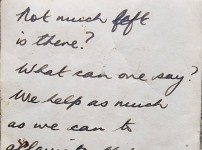 Not much left
is there?
What can one say?
We help as much
as we can to